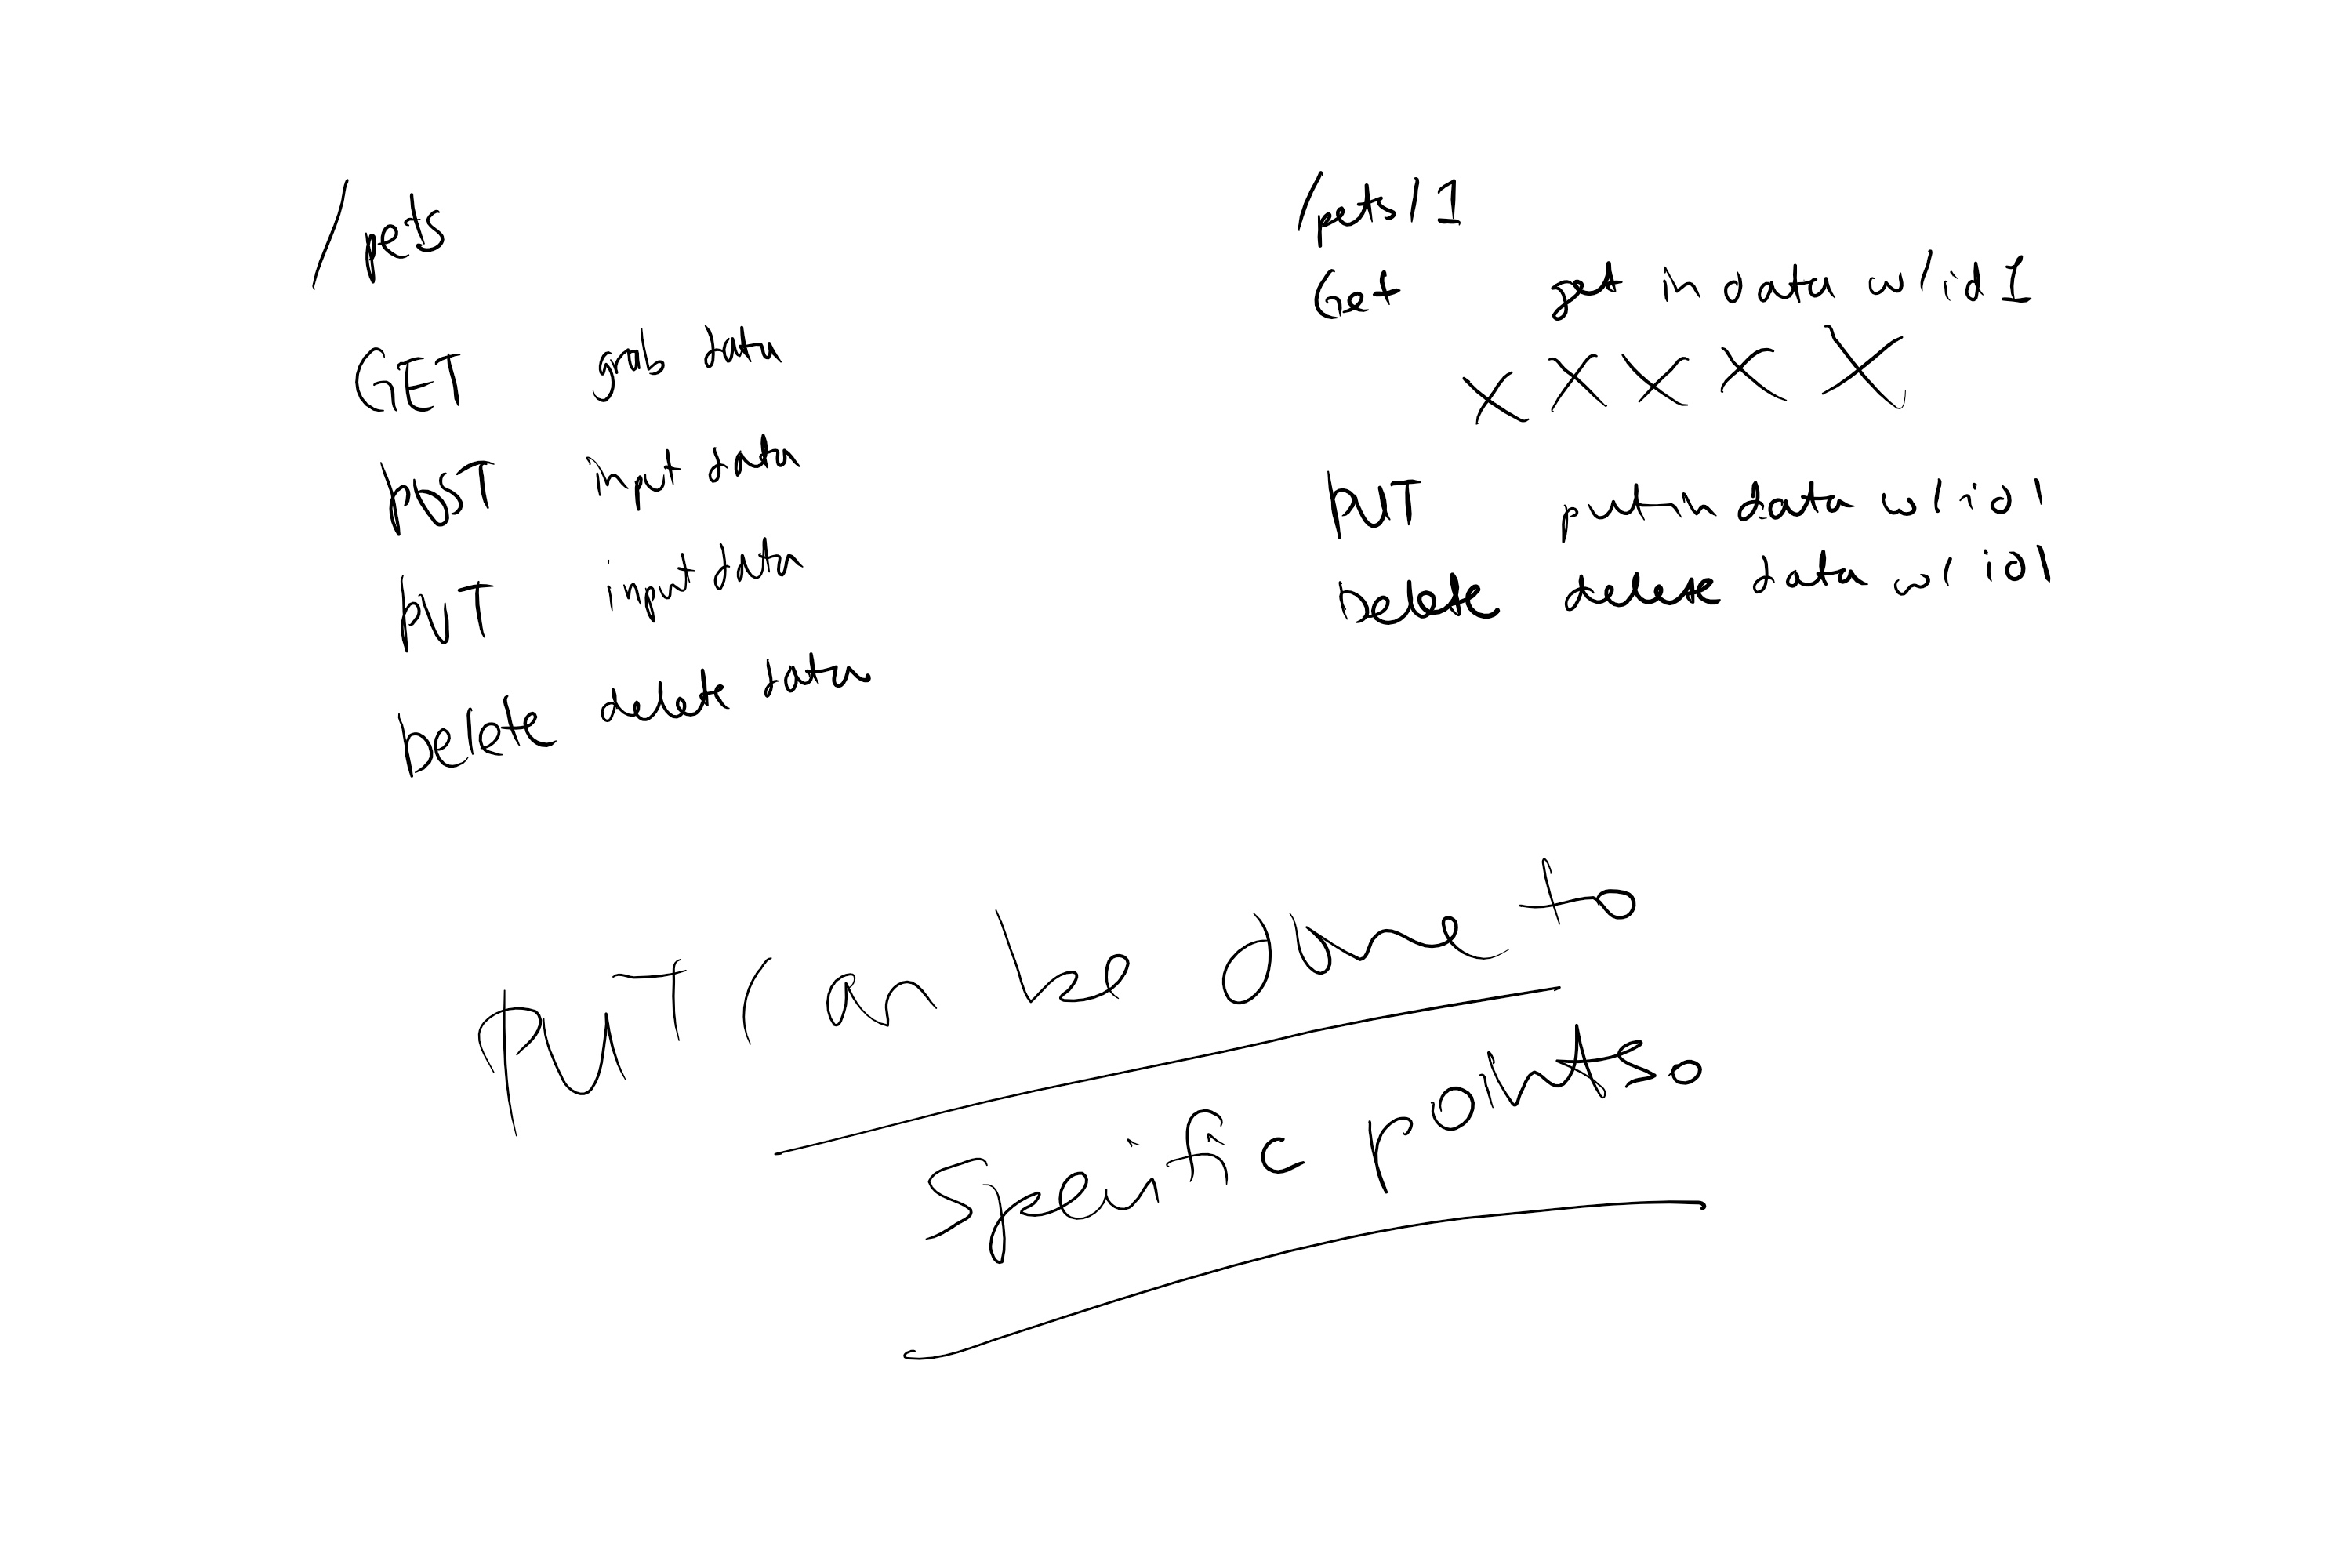 /pets
GET grab data
POST input data
PUT input data
Delete delete data
/pets/1
Get get in data w/ id 1
X X X X X
PUT put in data w/ id 1
Delete delete data w/ id 1
PUT can be done to
Specific points.